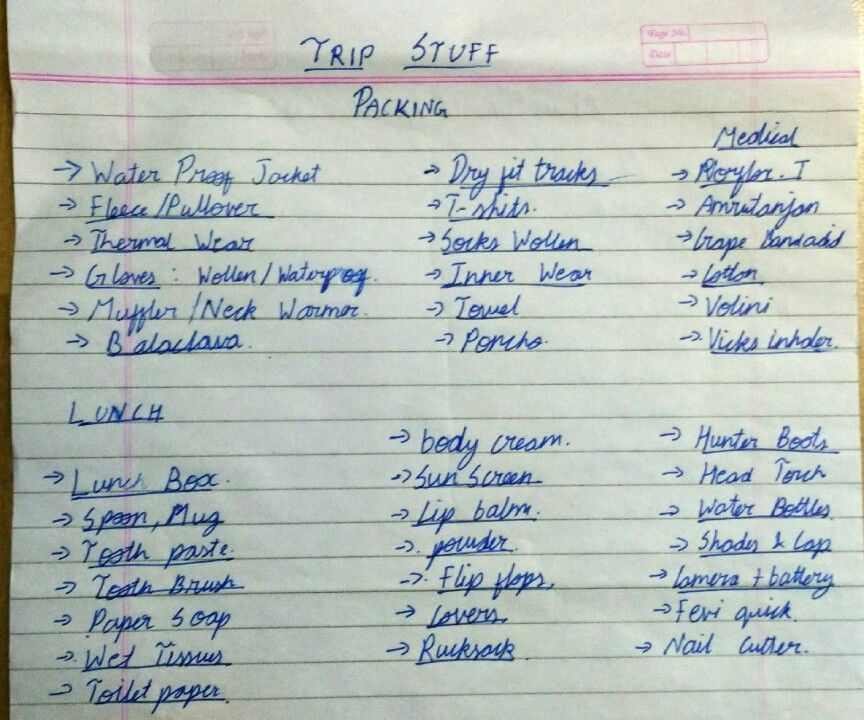 Page No.
Date
TRIP STUFF
PACKING
→ Water Proof Jacket
→ Fleece/Pullover
→ Thermal Wear
→ Gloves : Wollen/Waterproof.
→ Muffler/Neck Warmer.
→ Balaclava.
→ Dry fit tracks
→ T-shits.
→ Socks Wollen
→ Inner Wear
→ Towel
→ Poncho.
Medical
→ Amrutanjan
→ Crape Bandaid
→ Cotton
→ Volini
→ Vicks inhaler.
LUNCH
→ Lunch Box.
→ Spoon, Mug
→ Tooth paste.
→ Tooth Brush
→ Paper Soap
→ Wet Tissues
→ Toilet paper.
→ body cream.
→ Sun Screen
→ Lip balm.
→ powder
→ Flip flops.
→ Covers
→ Rucksack
→ Hunter Boots
→ Head Torch
→ Water Bottles
→ Shades & Cap
→ Camera + battery
→ Fevi quick.
→ Nail Cutter.